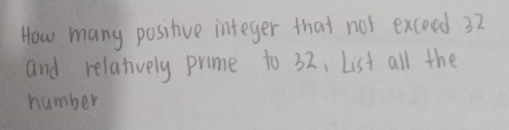 How many positive integer that not exceed 32
and relatively prime to 32, List all the
number